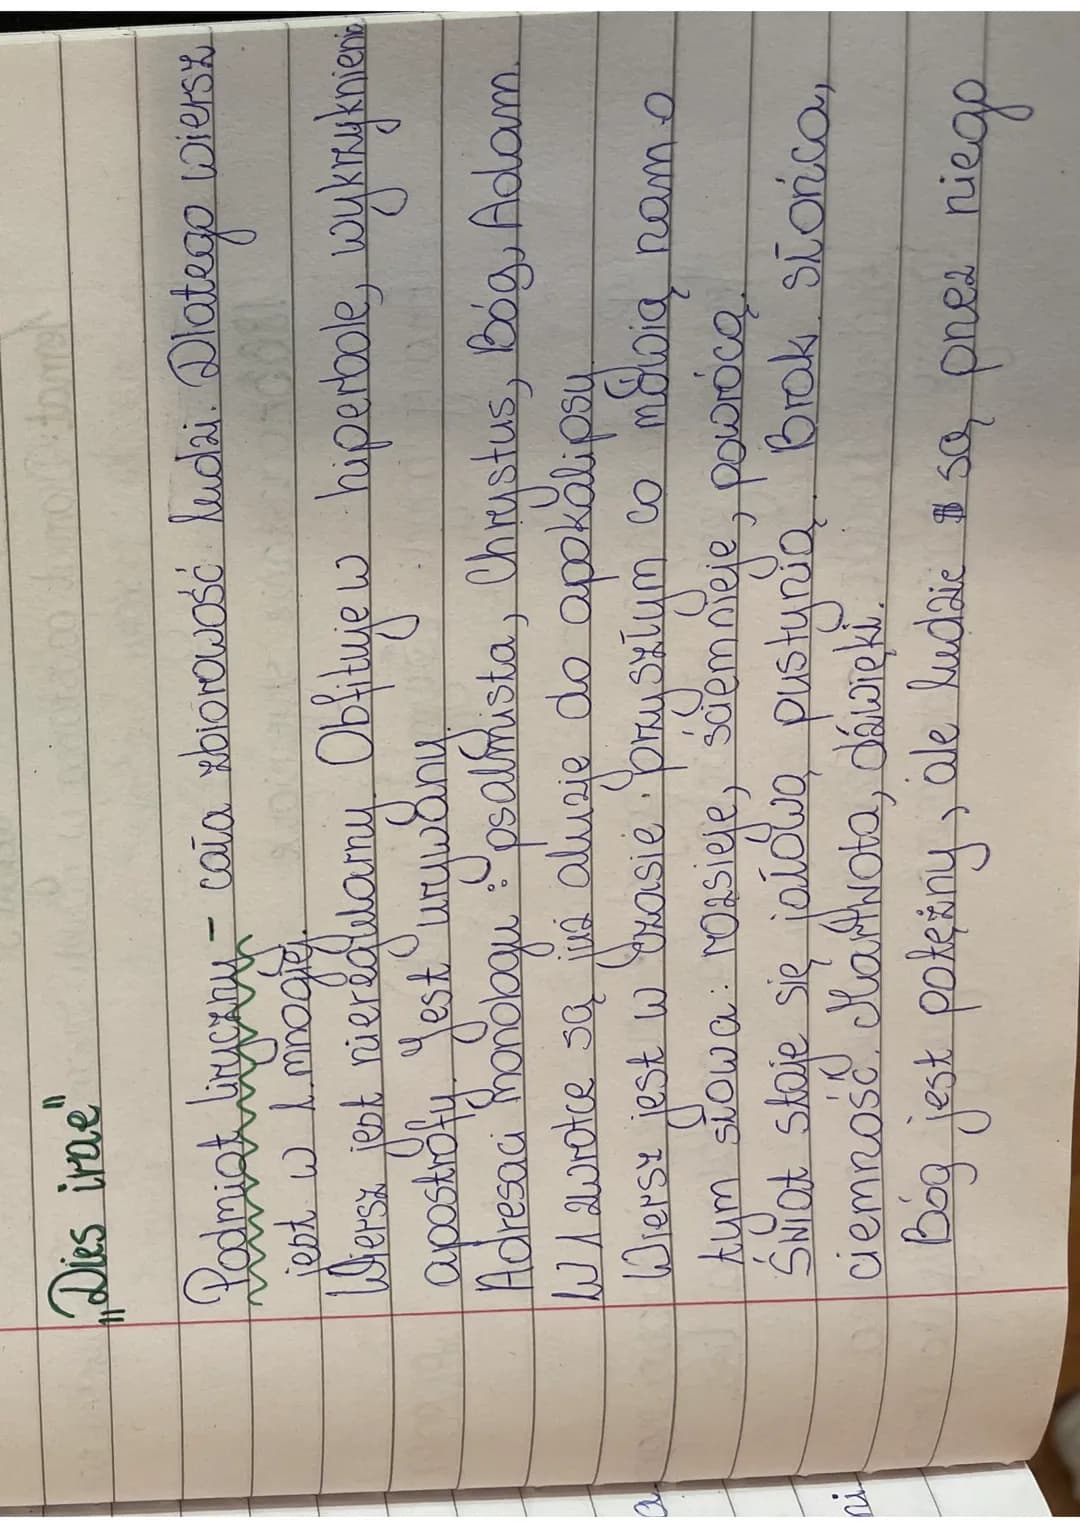 "Dies irae"
Podmiot liryczny - cała zbiorowość ludzi. Dlatego wiersz
jest w l. mnogiej.
Wiersz jest nieregularny. Obfituje w hiperbole, wykrzyknienia
apostrofy. Jest urywany.
Adresaci monologu: psalmista, Chrystus, Bóg, Adam.
W 1 zwrotce są już aluzie do apokalipsy
Wiersz jest w czasie przyszłym co mówią nam o
tym słowa: rozsieje, ściemnieje, powrócą.
Świat staje się jałową pustynią. Brak słońca,
ciemność. Martwota, dźwięki.
Bóg jest potężny, ale ludzie są przez niego
a
ni.